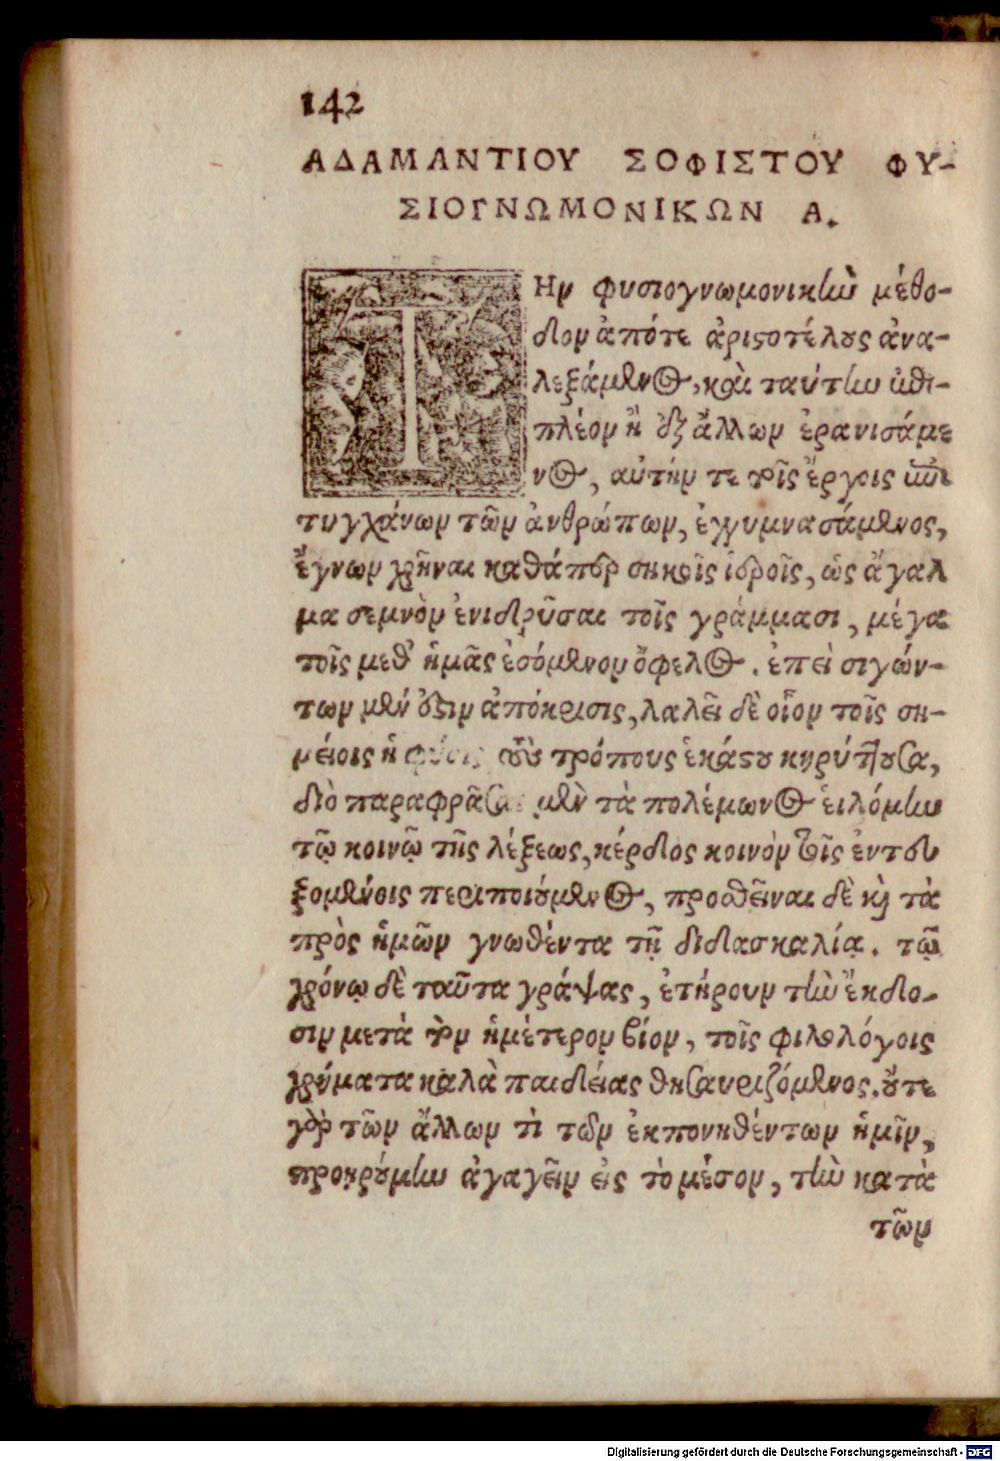 142
ΑΔΑΜΑΝΤΙΟΥ ΣΟΦΙΣΤΟΥ ΦΥ-
ΣΙΟΓΝΩΜΟΝΙΚΩΝ Α.
ΤΗν φυσιογνωμονικὴν μέθο-
δον ἀπότε ἀριστοτέλους ἀνα-
λεξάμενος, καὶ ταύτην ἐπὶ
πλέον ἢ ἐξ ἄλλων ἐρανισάμε
νος, αὐτήν τε τοῖς ἔργοις ἐπι
τυγχάνων τῶν ἀνθρώπων, ἐγγυμνασάμενος,
ἔγνων χρῆναι καθάπερ σηκοῖς ἱεροῖς, ὡς ἄγαλ
μα σεμνὸν ἐνιδρῦσαι τοῖς γράμμασι, μέγα
τοῖς μεθ' ἡμᾶς ἐσόμενον ὄφελος. ἐπεὶ σιγών-
των μέν ἐστιν ἀπόκρισις, λαλεῖ δὲ οἷον τοῖς ση-
μείοις ἡ φύσις τοὺς τρόπους ἑκάστου κηρύττουσα,
διὸ παραφρᾶσαι μὲν τὰ πολέμωνος εἱλόμην
τῷ κοινῷ τῆς λέξεως, κέρδος κοινὸν τοῖς ἐντευ
ξομένοις περιποιούμενος, προσθεῖναι δὲ καὶ τὰ
πρὸς ἡμῶν γνωθέντα τῇ διδασκαλίᾳ. τῷ
χρόνῳ δὲ ταῦτα γράψας, ἐτήρουν τὴν ἔκδο-
σιν μετὰ τὸν ἡμέτερον βίον, τοῖς φιλολόγοις
χρήματα καλὰ παιδείας θησαυριζόμενος. οὔτε
γὰρ τῶν ἄλλων τὶ τῶν ἐκπονηθέντων ἡμῖν,
προῃρούμην ἀγαγεῖν εἰς τὸ μέσον, τὴν κατὰ
τῶν
Digitalisierung gefördert durch die Deutsche Forschungsgemeinschaft - DFG